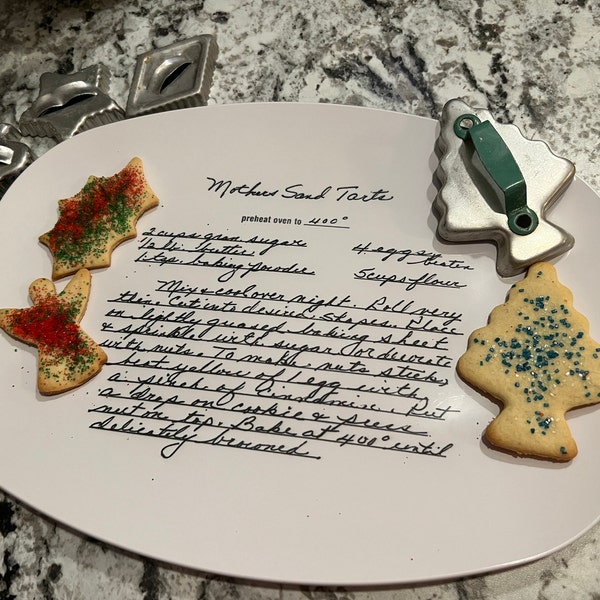 Mothers Sand Tarts
preheat oven to 400°
2 cups gran sugar
1 lb. butter
1 tsp. baking powder
4 eggs beaten
5 cups flour
Mix & cool over night. Roll very
thin. Cut into desired shapes. Place
on lightly greased baking sheet
& sprinkle with sugar or decorate
with nuts. To make nuts stick,
beat yellow of egg with
a pinch of cinnamon. Put
a drop on cookie & press
nut on top. Bake at 400° until
delicately browned.